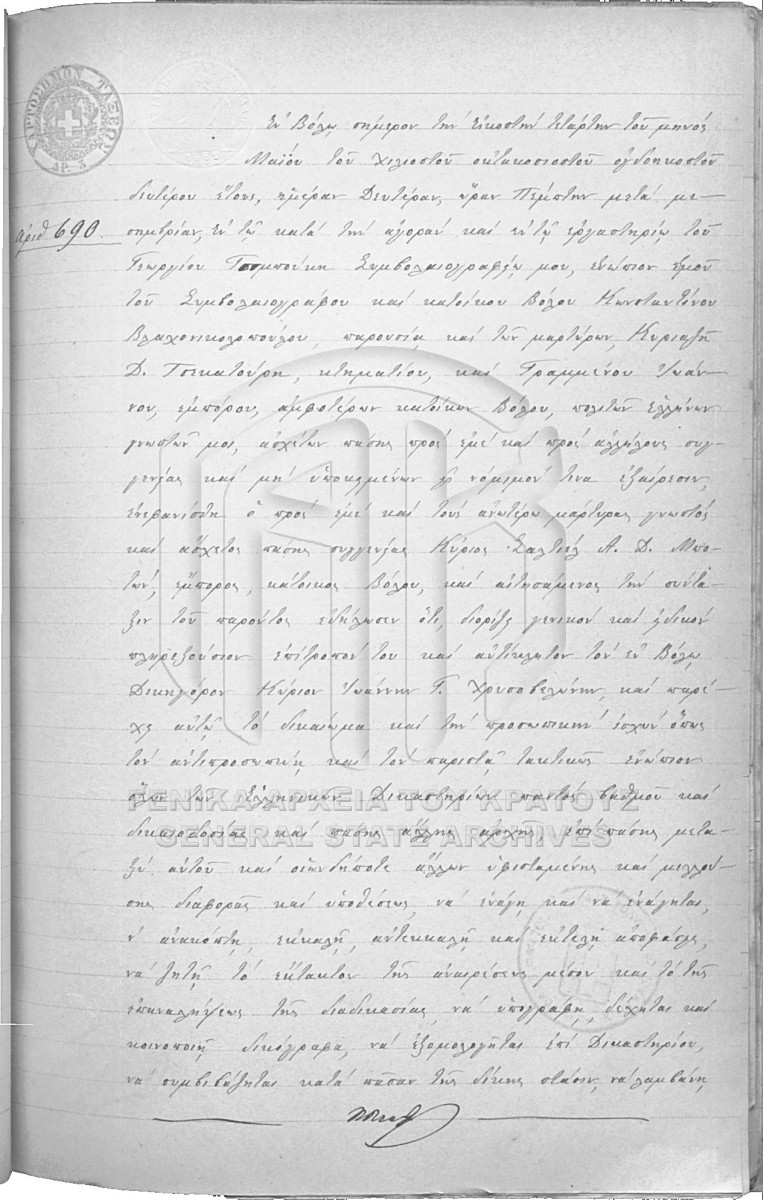 ΧΑΡΤΟΣΗΜΟΝ ΤΑΞΕΩΣ
ΔΡ. 3
Ἐν Βόλῳ σήμερον τὴν εἰκοστὴν τετάρτην τοῦ μηνὸς
Μαΐου τοῦ χιλιοστοῦ οκτακοσιοστοῦ ογδοηκοστοῦ
δευτέρου ἔτους, ἡμέραν Δευτέραν, ὥραν Πέμπτην μετὰ με-
σημβρίαν, ἐν τῷ κατὰ τὴν ἀγορὰν καὶ ἐν τῷ εργαστηρίῳ τοῦ
Αριθ 690.
Γεωργίου Συμβολαιογραφείῳ μου, ενώπιον εμοῦ
τοῦ Συμβολαιογράφου καὶ κατοίκου Βόλου Κωνσταντίνου
Βλαχονικολοπούλου, παρουσίᾳ καὶ τῶν μαρτύρων, Κυριαζῆ
Δ. Τσεκατούρη, κτηματίου, καὶ Γραμμένου Ἰωάν-
νου, εμπόρου, αμφοτέρων κατοίκων Βόλου, πολιτῶν ελλήνων
γνωστῶν μοι, ἀσχέτων πάσης πρὸς ἐμὲ καὶ πρὸς ἀλλήλους συγ-
γενείας καὶ μὴ ὑποκειμένων εἰς νόμιμόν τινα ἐξαίρεσιν,
ενεφανίσθη ὁ πρὸς ἐμὲ καὶ τοὺς ἀνωτέρω μάρτυρας γνωστὸς
καὶ ἄσχετος πάσης συγγενείας Κύριος Σαλτιὲλ Α. Δ. Μπο-
τών, ἔμπορος, κάτοικος Βόλου, καὶ αιτησάμενος τὴν σύντα-
ξιν τοῦ παρόντος εδήλωσεν ὅτι, διορίζει γενικὸν καὶ εἰδικὸν
πληρεξούσιον επίτροπόν του καὶ αντίκλητον τὸν ἐν Βόλῳ
Δικηγόρον Κύριον Ἰωάννην Γ. Χρυσοβελώνην, καὶ παρέ-
χει αὐτῷ τὸ δικαίωμα καὶ τὴν προσωπικὴν ἰσχὺν ὅπως
τὸν ἀντιπροσωπεύῃ καὶ τὸν παριστᾷ τακτικῶς ενώπιον
ὅλων τῶν Ἑλληνικῶν Δικαστηρίων παντὸς βαθμοῦ καὶ
δικαιοδοσίας καὶ πάσης ἄλλης ἀρχῆς ἐπὶ πάσης μετα-
ξὺ αὐτοῦ καὶ οιωνδήποτε ἄλλων ὑφισταμένης καὶ μελλού-
σης διαφορᾶς καὶ ὑποθέσεως, νὰ ἐνάγῃ καὶ νὰ ἐνάγηται,
ν' ἀνακόπτῃ, εκκαλῇ, αντεκκαλῇ καὶ εκτελῇ αποφάσεις,
νὰ ζητῇ τὸ ἔκτακτον τῆς ἀναιρέσεως μέσον καὶ τὸ τῆς
επαναλήψεως τῆς διαδικασίας, νὰ ὑπογράφῃ, δέχηται καὶ
κοινοποιῇ δικόγραφα, νὰ ἐξομολογῆται ἐπὶ Δικαστηρίου,
νὰ συμβιβάζηται κατὰ πᾶσαν τῆς δίκης στάσιν, νὰ λαμβάνῃ
ΓΕΝΙΚΑ ΑΡΧΕΙΑ ΤΟΥ ΚΡΑΤΟΥΣ
GENERAL STATE ARCHIVES